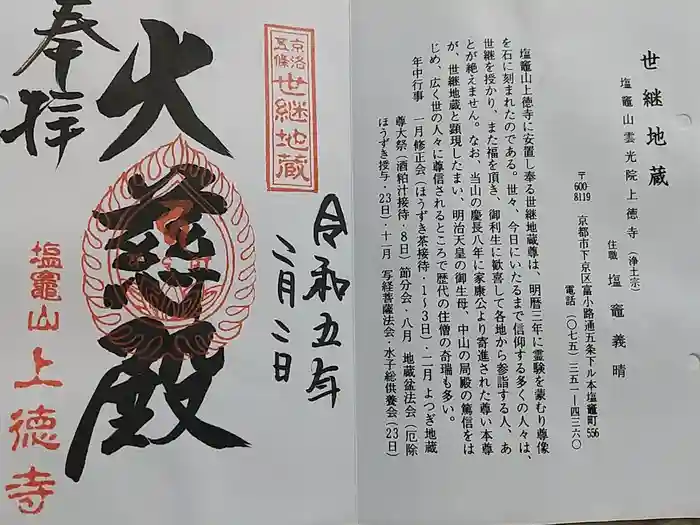 世継地蔵
塩竈山雲光院上徳寺(浄土宗)
住職 塩竈義晴
〒600-8119 京都市下京区富小路通五条下ル本塩竈町556
電話(〇七五)三五一ー四三六〇
塩竈山上徳寺に安置し奉る世継地蔵尊は、明暦三年に霊験を蒙むり尊像
を石に刻まれたのである。世々、今日にいたるまで信仰する多くの人々は、
世継を授かり、また福を頂き、御利生に歓喜して各地から参詣する人、あ
とが絶えません。なお、当山の慶長八年に家康公より寄進された尊い本尊
が、世継地蔵と顕現したまい、明治天皇の御生母、中山の局殿の篤信をは
じめ、広く世の人々に尊信されるところで歴代の住僧の奇瑞も多い。
年中行事 一月修正会(ほうずき茶接待・1~3日)・二月 よつぎ地蔵
尊大祭(酒粕汁接待・8日)節分会・八月 地蔵盆法会(厄除
ほうずき授与・23日)・十一月 写経菩薩法会・水子総供養会(23日)
京洛
五條
世継地蔵
奉拝
火
慈
殿
令和五年
二月二日
塩竈山上徳寺